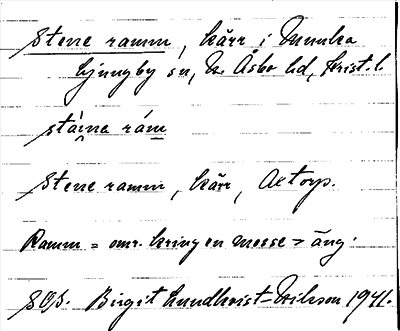 Stene ramm, kärr i Munka
Ljungby sn, N. Åsbo hd, Krist. l.
stài̯na rám
Stene ramm, kärr, Axtorp.
Ramm = omr. kring en mosse > äng.
SOÞ. Birgit Lundkvist-Nilsson 1941.